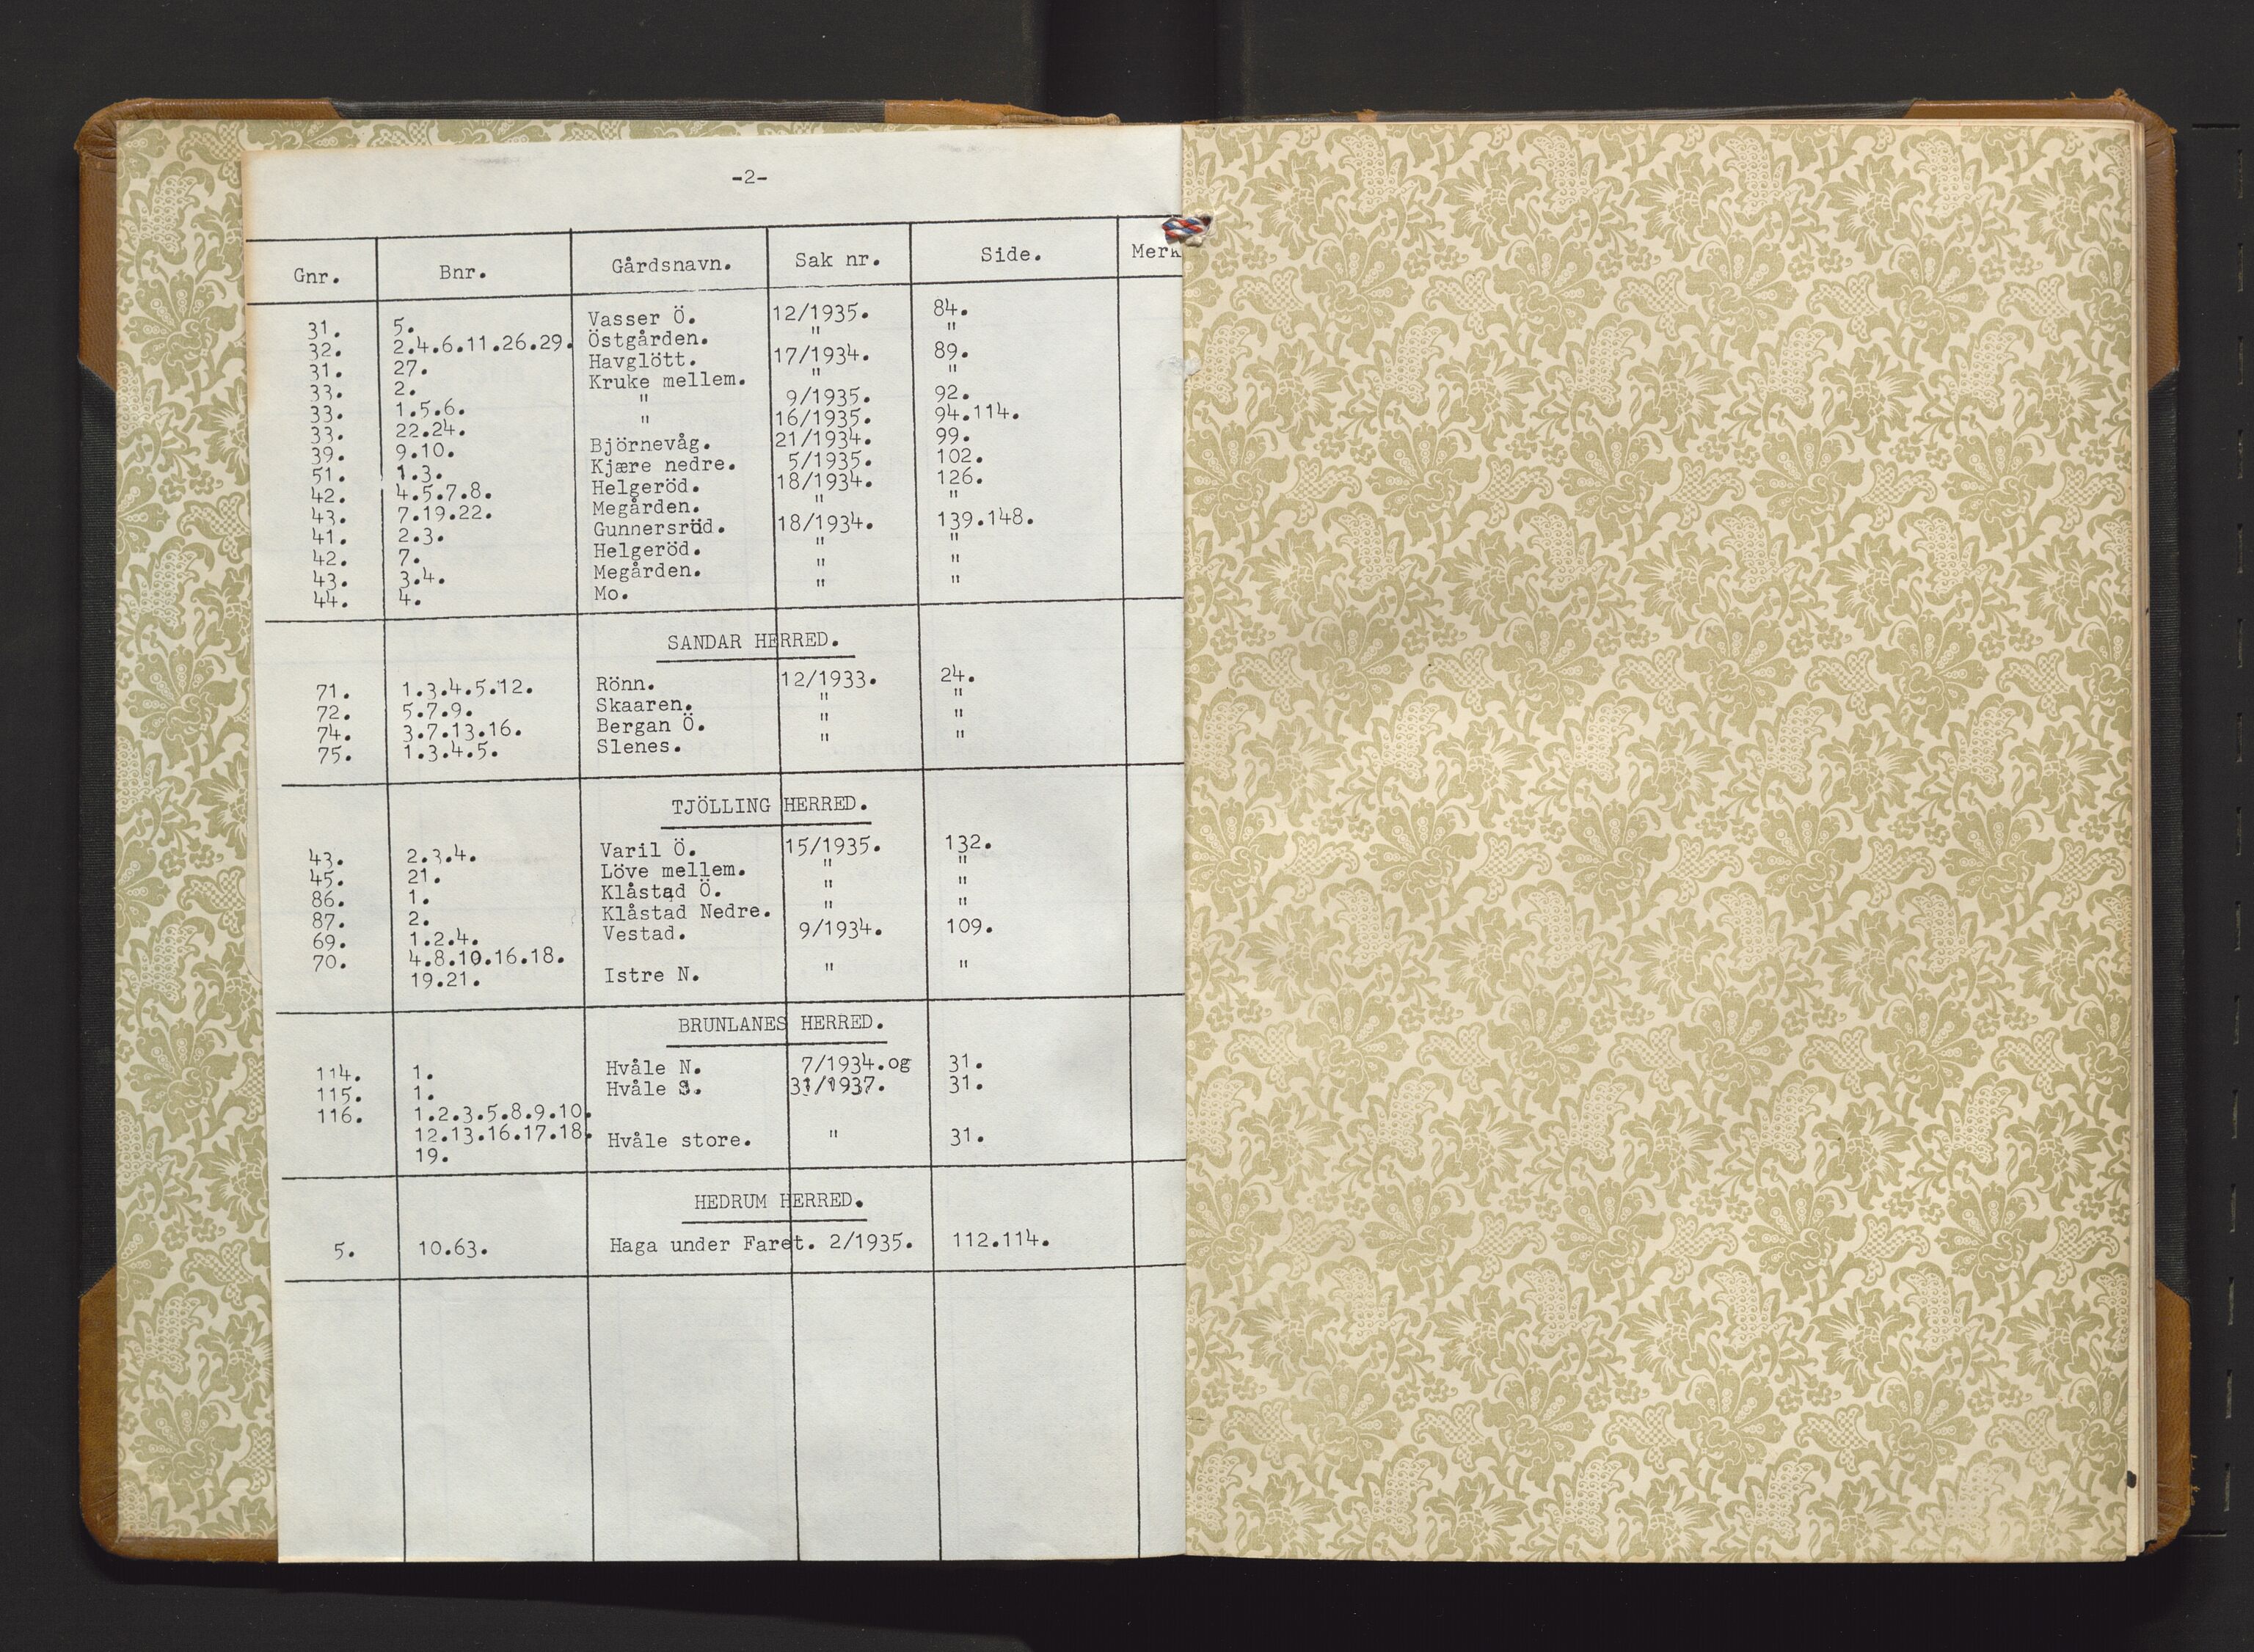 -2-
Gnr. Bnr. Gårdsnavn. Sak nr. Side. Merk
31. 5. Vasser Ö. 12/1935. 84.
32. 2.4.6.11.26.29. Östgården. " "
31. 27. Havglött. 17/1934. 89.
33. 2. Kruke mellem. " "
33. 1.5.6. " 9/1935. 92.
33. 22.24. " 16/1935. 94.114.
39. 9.10. Björnevåg. 21/1934. 99.
51. 1.3. Kjære nedre. 5/1935. 102.
42. 4.5.7.8. Helgeröd. 18/1934. 126.
43. 7.19.22. Megården. " "
41. 2.3. Gunnersröd. 18/1934. 139.148.
42. 7. Helgeröd. " "
43. 3.4. Megården. " "
44. 4. Mo. " "
SANDAR HERRED.
71. 1.3.4.5.12. Rönn. 12/1933. 24.
72. 5.7.9. Skaaren. " "
74. 3.7.13.16. Bergan Ö. " "
75. 1.3.4.5. Slenes. " "
TJÖLLING HERRED.
43. 2.3.4. Varil Ö. 15/1935. 132.
45. 21. Löve mellem. " "
86. 1. Klåstad Ö. " "
87. 2. Klåstad Nedre. " "
69. 1.2.4. Vestad. 9/1934. 109.
70. 4.8.10.16.18.
19.21. Istre N. " "
BRUNLANES HERRED.
114. 1. Hvåle N. 7/1934.og 31.
115. 1. Hvåle S. 31/1937. 31.
116. 1.2.3.5.8.9.10.
12.13.16.17.18. Hvåle store. " 31.
19.
HEDRUM HERRED.
5. 10.63. Haga under Faret. 2/1935. 112.114.